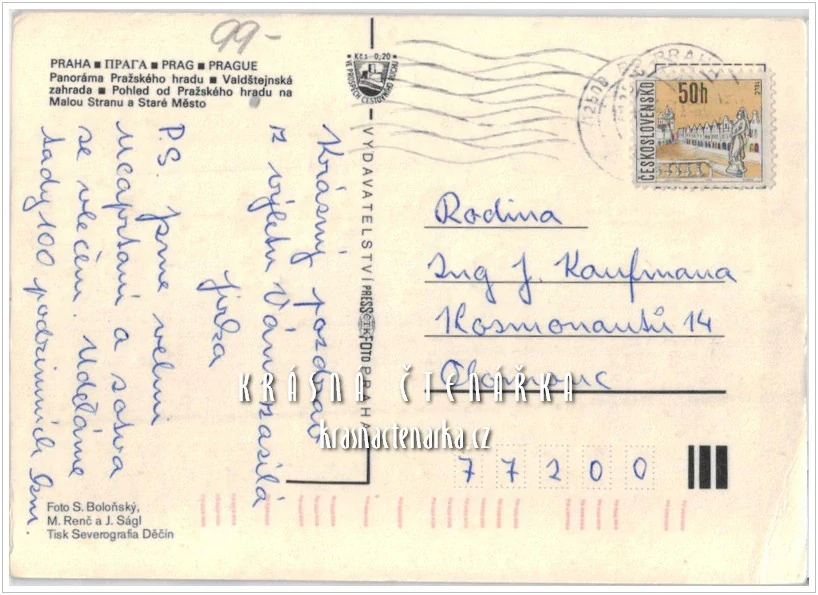 99-
PRAHA ■ ПРАГА ■ PRAG ■ PRAGUE
Panoráma Pražského hradu ■ Valdštejnská
zahrada ■ Pohled od Pražského hradu na
Malou Stranu a Staré Město
Kčs 0,20
VE PROSPĚCH CESTOVNÍHO RUCHU
ČESKOSLOVENSKO
50h
TELČ
Krásný pozdrav
z výletu Vám zasílá
Jirka
P.S. jsme velmi
ucaprtaní a sotva
se vlečem. Uděláme
tady 100 podzimních
VYDAVATELSTVÍ PRESSFOTO PRAHA
ČTK
Rodina
Ing J. Kaufmana
Kosmonautů 14
Olomouc
77200
KRÁSNÁ ČTENÁŘKA
krasnactenarka.cz
Foto S. Boloňský,
M. Renč a J. Ságl
Tisk Severografia Děčín